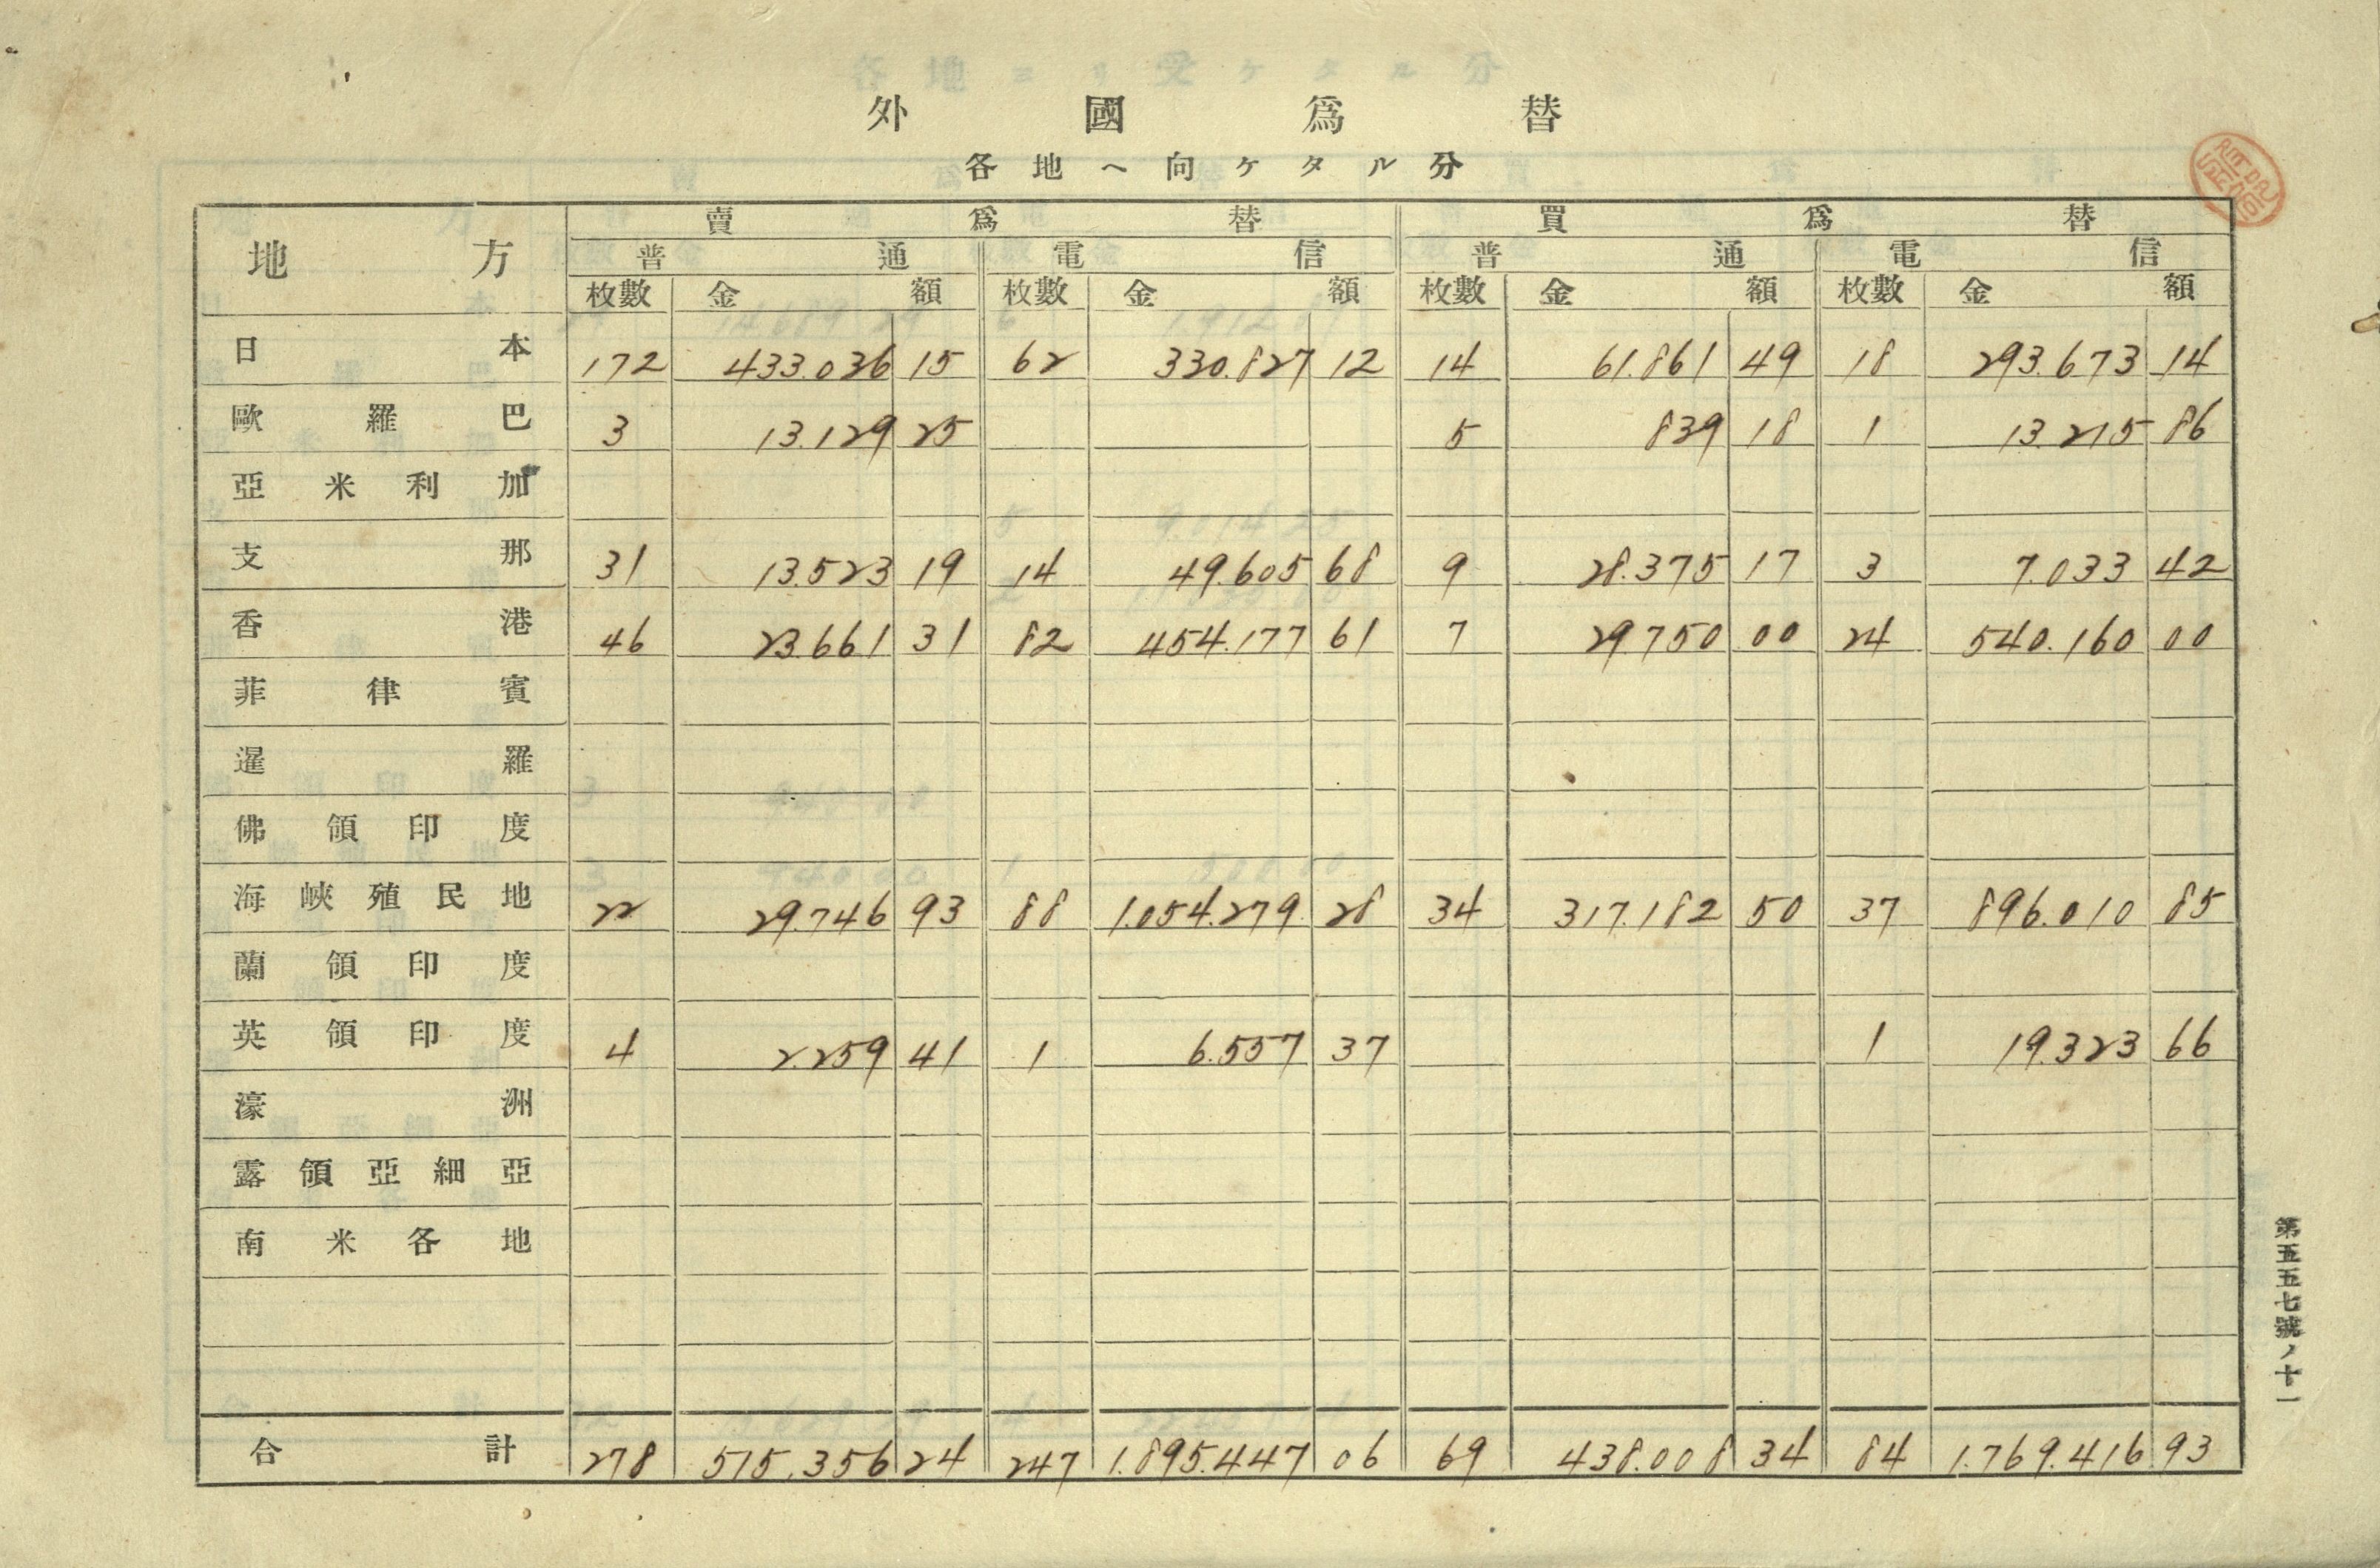 外國爲替
各地ヘ向ケタル分
地方 賣爲替 買爲替
普通 電信 普通 電信
枚數 金額 枚數 金額 枚數 金額 枚數 金額
日本 172 433.036 15 62 330.827 12 14 61.861 49 18 293.673 14
歐羅巴 3 13.129 25 5 839 18 1 13.215 86
亞米利加
支那 31 13.523 19 14 49.605 68 9 28.375 17 3 7.033 42
香港 46 23.661 31 82 454.177 61 7 29.750 00 24 540.160 00
菲律賓
暹羅
佛領印度
海峽殖民地 22 29.746 93 88 1.054.279 28 34 317.182 50 37 896.010 85
蘭領印度
英領印度 4 2.259 41 1 6.557 37 1 19.323 66
濠洲
露領亞細亞
南米各地
合計 278 515.356 24 247 1.895.447 06 69 438.008 34 84 1.769.416 93
第五五七號ノ十一